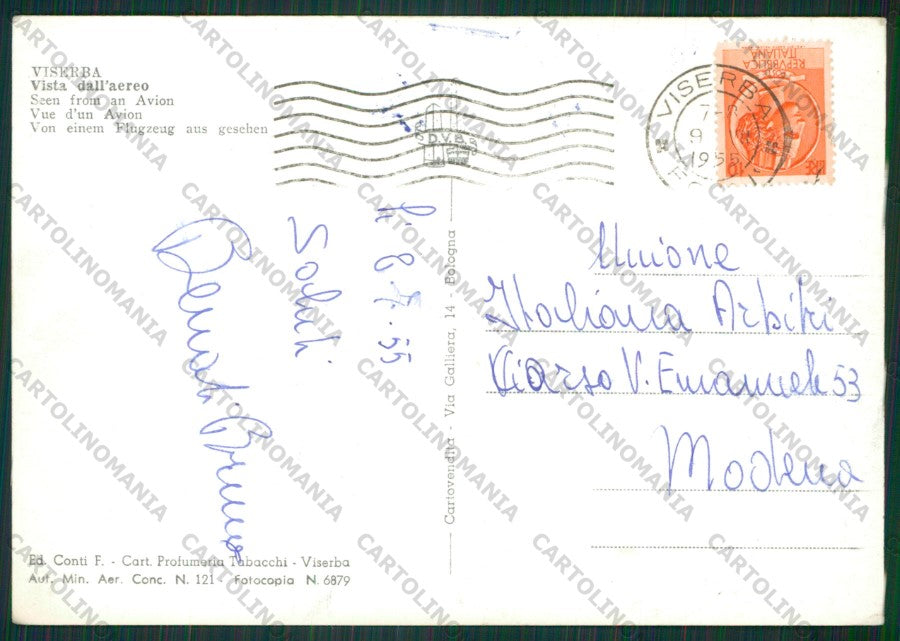 VISERBA
Vista dall'aereo
Seen from an Avion
Vue d'un Avion
Von einem Flugzeug aus gesehen
VISERBA
9
1955
REPVBBLICA
ITALIANA
lì 8-7-55
Saluti
Bruno
Cartovendita - Via Galliera, 14 - Bologna
Unione
Italiana Arbitri
V. Emanuele 53
Modena
Ed. Conti F. - Cart. Profumeria Tabacchi - Viserba
Aut. Min. Aer. Conc. N. 121 - Fotocopia N. 6879
CARTOLINOMANIA